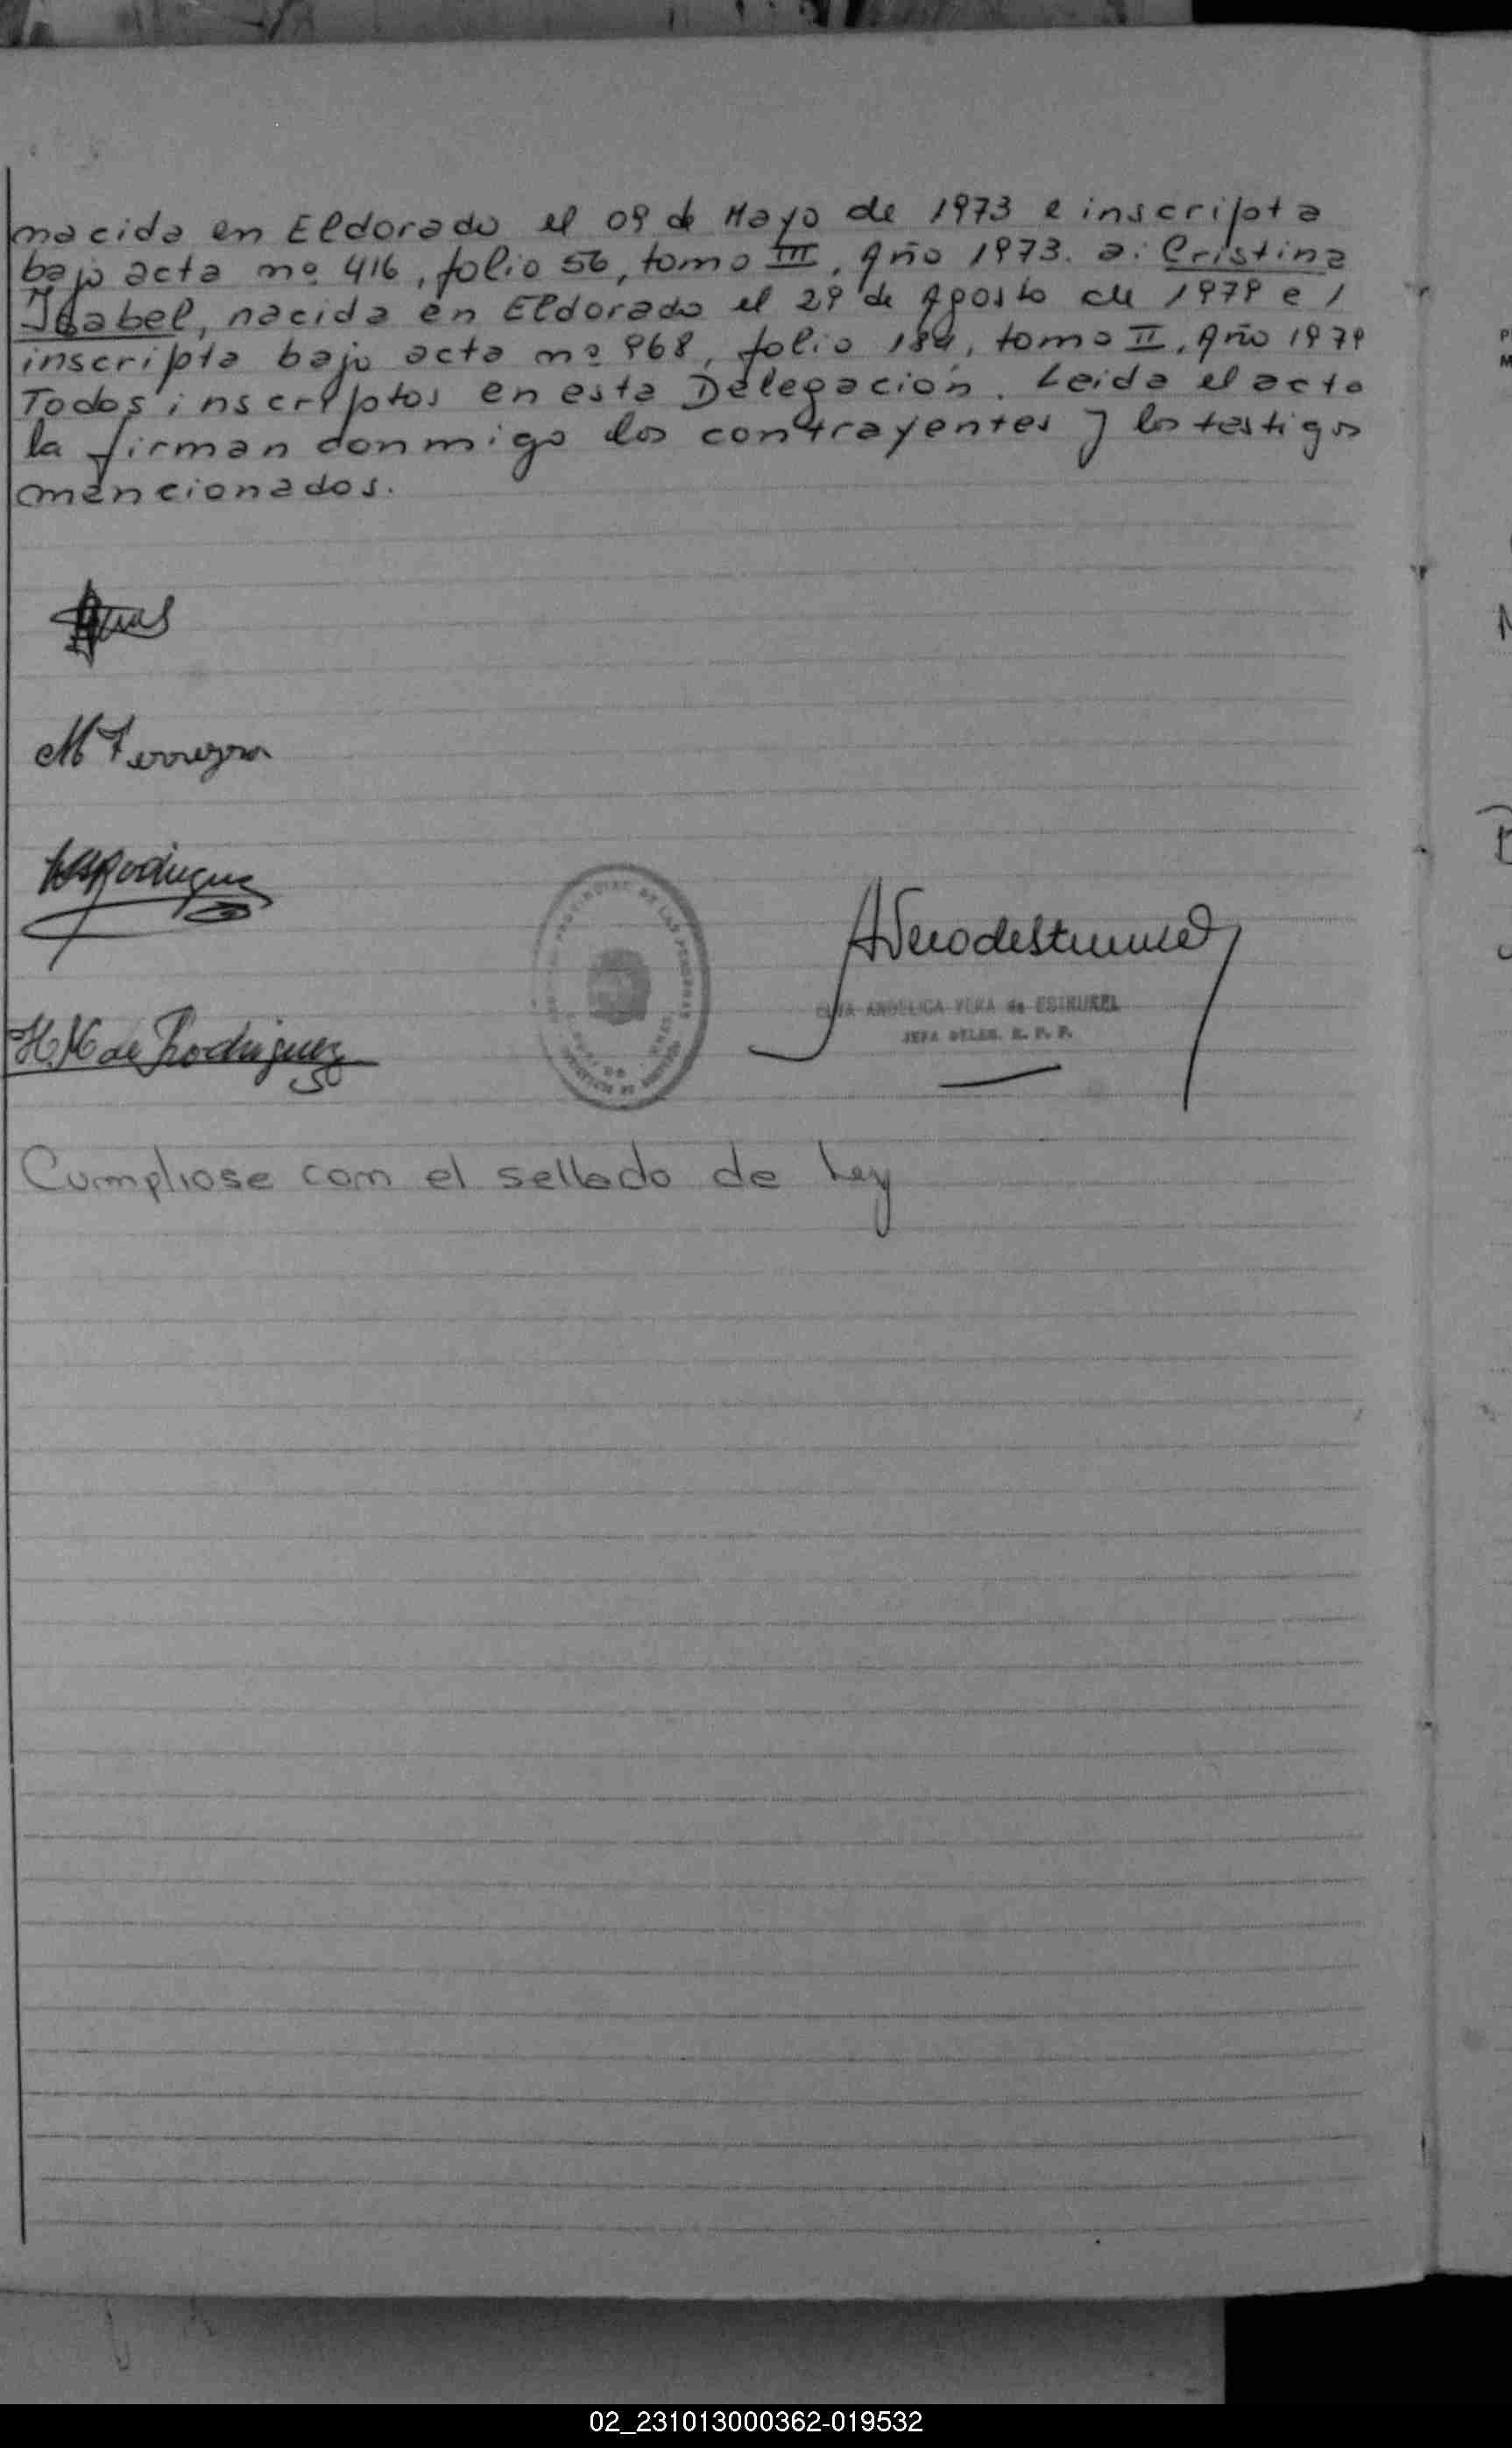 nacida en Eldorado el 09 de Mayo de 1973 e inscripta
bajo acta nº 416, folio 56, tomo III, Año 1973. a: Cristina
Isabel, nacida en Eldorado el 29 de Agosto de 1979 e /
inscripta bajo acta nº 968, folio 184, tomo II, Año 1979
Todos inscriptos en esta Delegación. Leida el acta
la firman conmigo los contrayentes y los testigos
mencionados.
M Ferreyra
Rodriguez
PROVINCIAL DE LAS PERSONAS
H. M de Rodriguez
ANGELICA VERA de ESTRUKEL
JEFA DELEG. R. P. P.
Cumpliose con el sellado de Ley
02_231013000362-019532